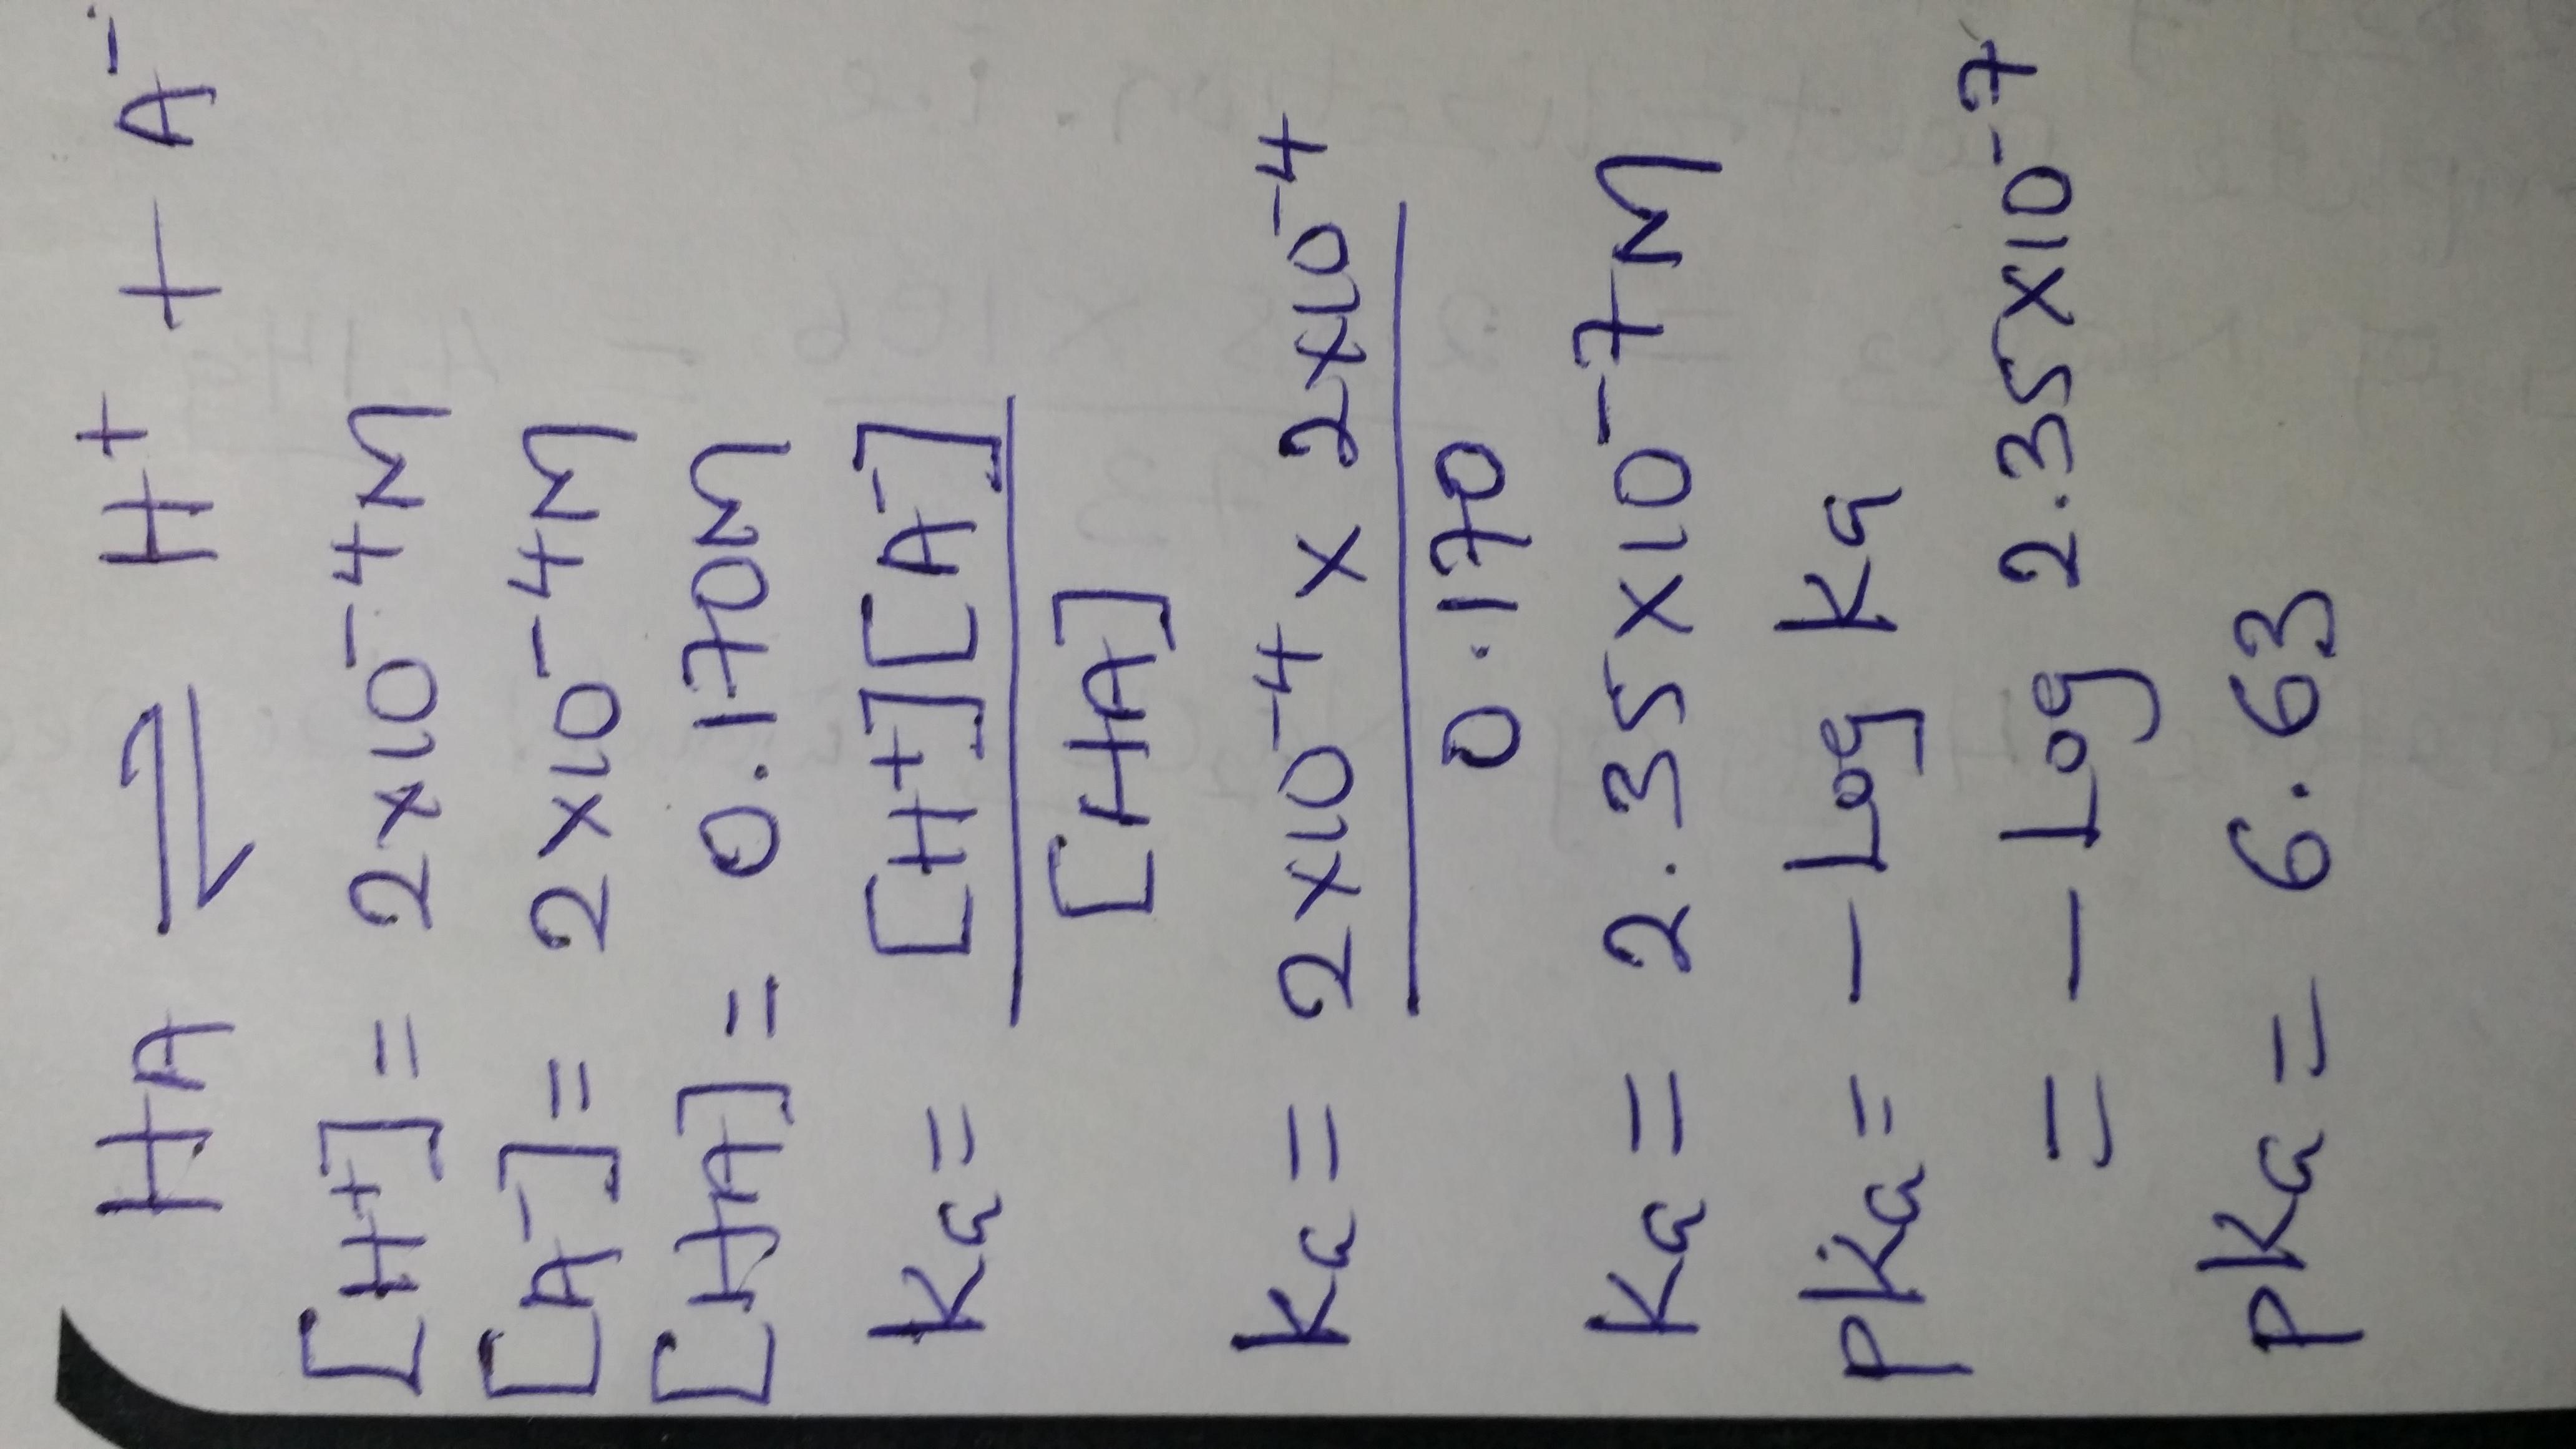 HA ⇌ H⁺ + A⁻
[H⁺] = 2×10⁻⁴M
[A⁻] = 2×10⁻⁴M
[HA] = 0.170M
Ka = [H⁺][A⁻]
[HA]
Ka = 2×10⁻⁴ × 2×10⁻⁴
0.170
Ka = 2.35×10⁻⁷M
PKa = - Log Ka
= - Log 2.35×10⁻⁷
PKa = 6.63